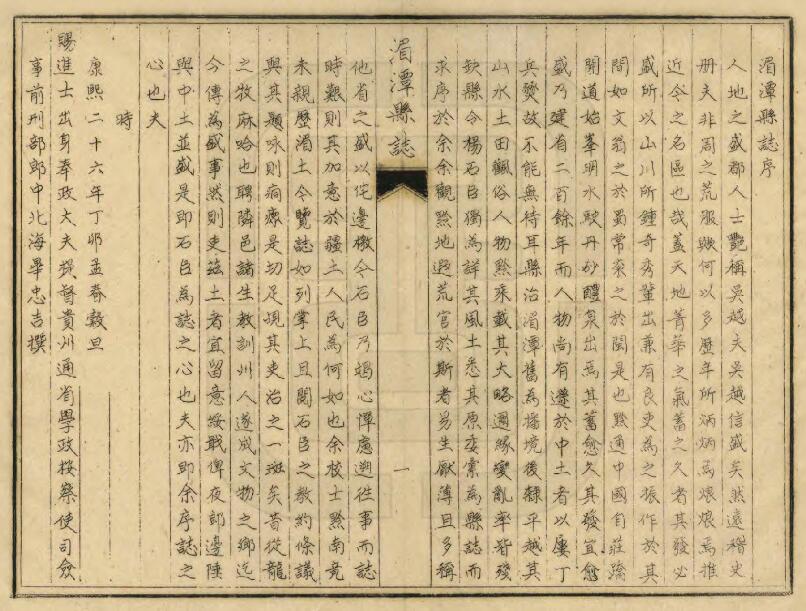 湄潭縣誌序
人地之盛郡人士艷稱吳越夫吳越信盛矣然遠稽史
册夫非周之荒服歟何以多歷年所炳炳焉烺烺焉推
近今之名區也哉蓋天地菁華之氣蓄之久者其發必
盛所以山川所鍾奇秀輩出兼有良吏為之振作於其
間如文翁之於蜀常袞之於閩是也黔通中國自莊蹻
開道始峯明水駛丹砂醴泉出焉其蓄愈久其發宜愈
盛乃建省二百餘年而人物尚有遜於中土者以屢丁
兵燹故不能無待耳縣治湄潭舊為播境後隸平越其
山水土田風俗人物黔乘載其大略迴緣變亂率皆殘
缺縣令楊石臣獨為詳其風土悉其原委彙為縣誌而
求序於余余觀黔地遐荒官於斯者易生厭薄且多稱
湄潭縣誌
一
他省之盛以侘邊檄今石臣乃竭心憚慮遡往事而誌
時艱則其加意於疆土人民為何如也余校士黔南竟
未親歷湄土今覽誌如列掌上且閱石臣之教約條議
與其題咏則痌瘝是切足覘其吏治之一斑矣昔從龍
之牧麻哈也聘隣邑諸生教訓州人遂成文物之鄉迄
今傳為盛事然則吏茲土者宜留意綏戢俾夜郎邊陲
與中土並盛是即石臣為誌之心也夫亦即余序誌之
心也夫
時
康熙二十六年丁卯孟春穀旦
賜進士出身奉政大夫提督貴州通省學政按察使司僉
事前刑部郎中北海畢忠吉撰